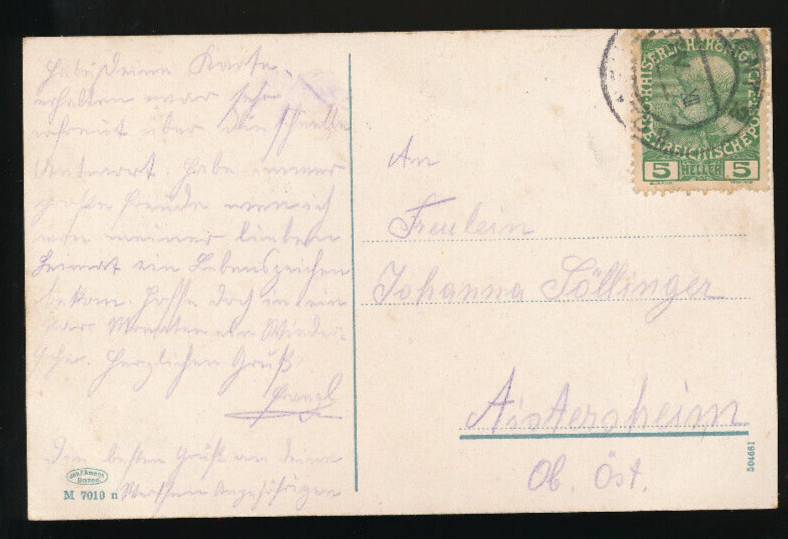 Habe Deine Karte
erhalten war sehr
erfreut über die schnelle
Antwort. Habe immer
große Freude wenn ich
von meiner lieben
Heimat ein Lebenszeichen
bekom. Hoffe doch in ein
par Monaten ein Wieder-
sehn. Herzlichen Gruß
Den besten Gruß an deine
Werthen Angehörigen
M 7010 n
KAISERLICH KÖNIGLICHE
ÖSTERREICHISCHE POST
5 HELLER 5
An
Freulein
Johanna Söllinger
Aistersheim
Ob. Öst.
504661